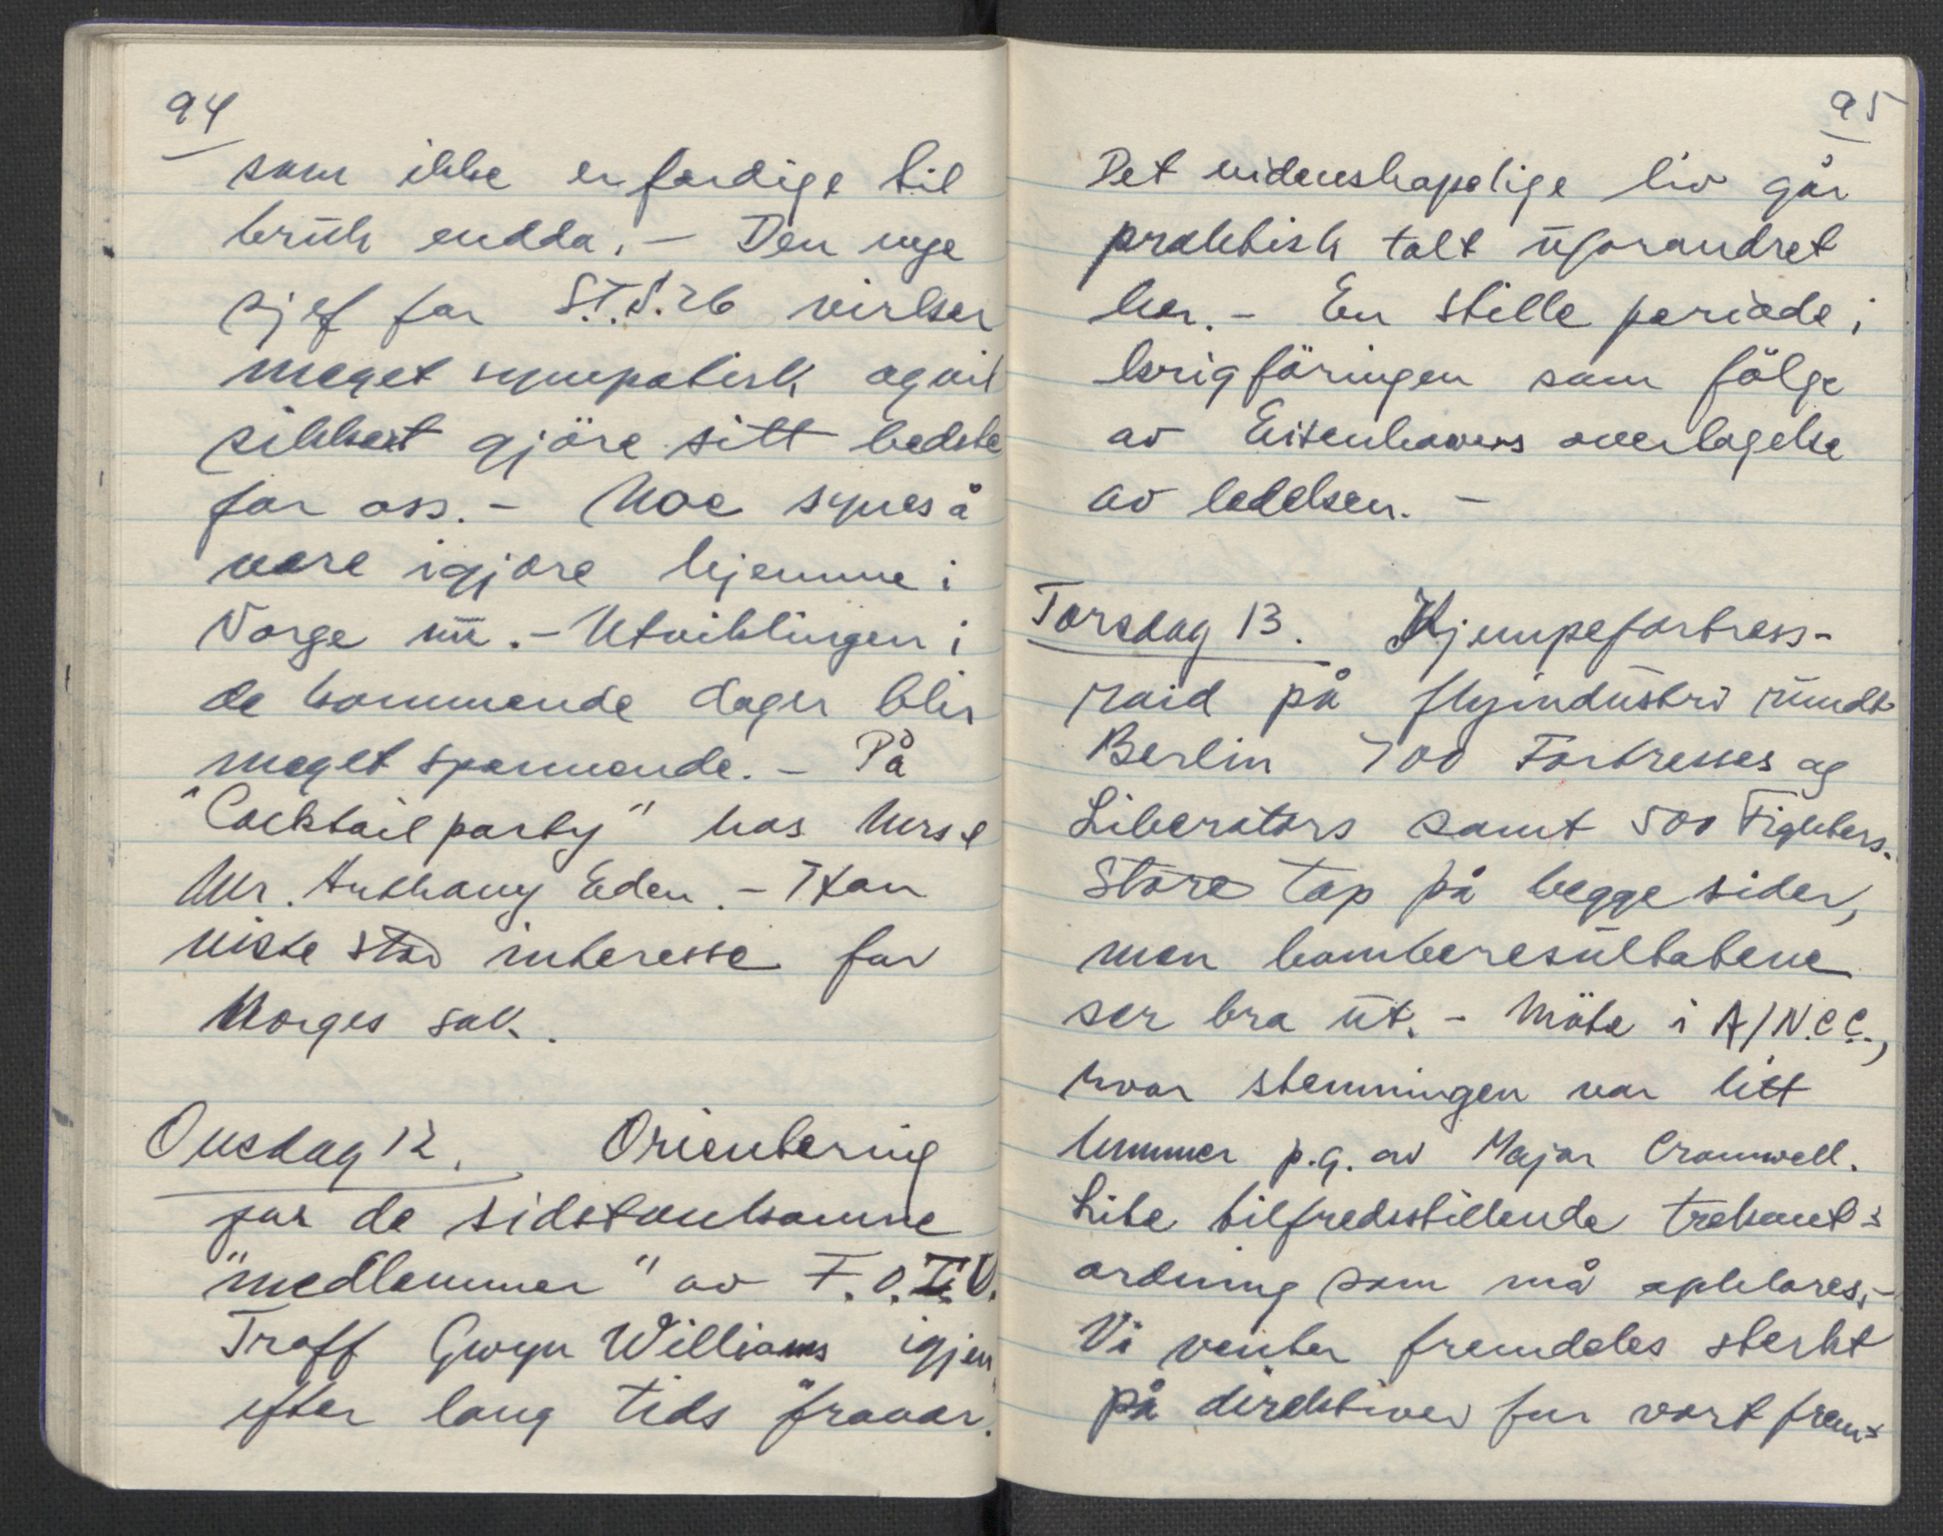 94
som ikke er færdige til
brük endda. – Den nye
sjef for S.T.S. 26 virker
meget sympatisk og vil
sikkert gjöre sitt bedste
for oss. – Noe synes å
være igjære hjemme i
Norge nü. – Utviklingen i
de kommende dager blir
meget spennende. – På
"Cocktail party" hos Mrs &
Mr. Anthony Eden. – Han
viste stor interesse for
Norges sak.
Onsdag 12. Orientering
for de sidstankomne
"medlemmer" av F.O.IV.
Traff Gwyn Williams igjen
efter lang tids fravær.
95
Det videnskapelige liv går
praktisk talt üforandret
her. – En stille periode i
krigföringen som fölge
av Eisenhowers overtagelse
av ledelsen. –
Torsdag 13. Kjempefortress-
raid på flyindüstri ründt
Berlin 700 Fortresses og
Liberators samt 500 Fighters.
Store tap på begge sider,
men bomberesültatene
ser bra üt. – Möte i A/N.C.C.,
hvor stemningen var litt
lummer p.g. av Major Cromwell.
Lite tilfredsstillende trekant-
ordning som må opklares. –
Vi venter fremdeles sterkt
på direktiver for vort frem-